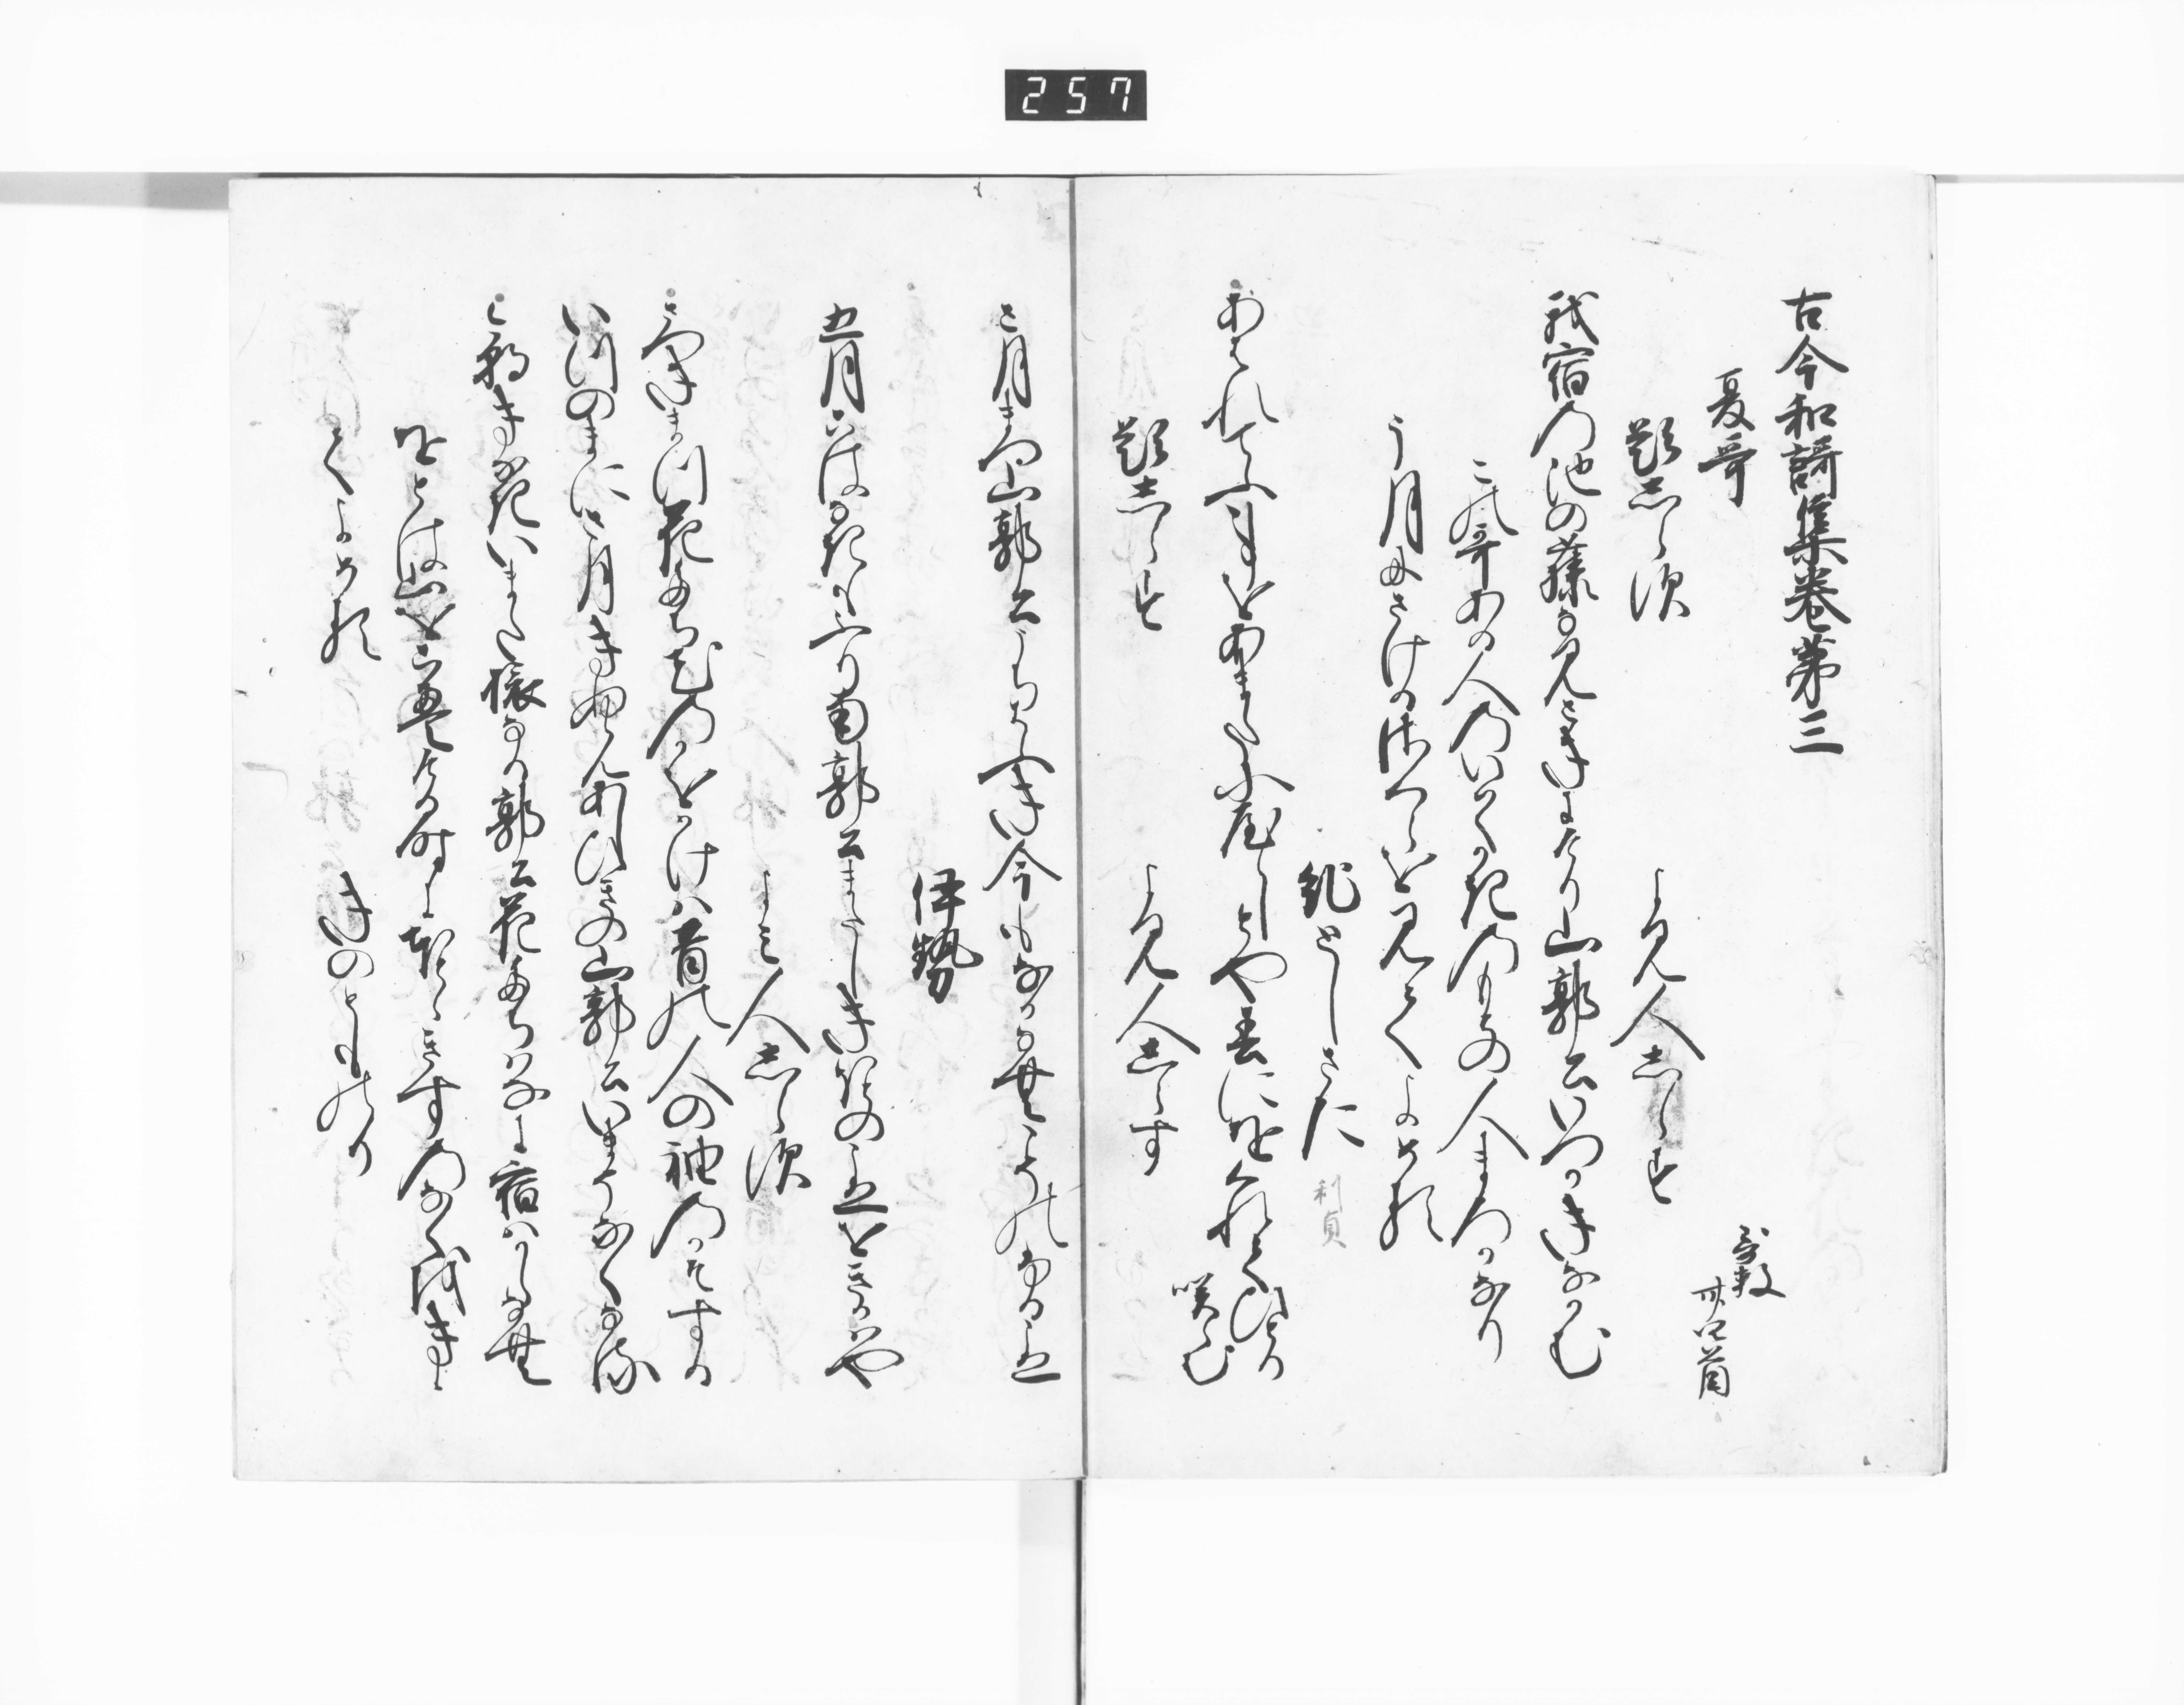 257
古今和謌集巻第三
夏哥
哥数
卅四首
題しらす
よみ人しらす
我宿の池の藤なみさきにけり山郭公いつかきなかむ
この哥ある人のいはくかきのもとの人まろかなり
う月にさける桜を見てよめる
紀としさた
利貞
あはれてふ事をあまたにやらしとや春にをくれてひとり
咲らむ
題しらす
よみ人しらす
さ月まつ山郭公うちはふき今もなかなむこその
伊勢
五月こはなきもふりなむ郭公またしきほとのこゑをきかはや
よみ人しらす
さ月まつ花たち花のかをかけは昔の人の袖のかそする
いつのまにさ月きぬらんあしひきの山郭公いまそなくなる
けさきなきいまた旅なる郭公花たち花に宿はからなむ
をとは山をこえける時に郭公のなくをきき
てよめる
きのとものり